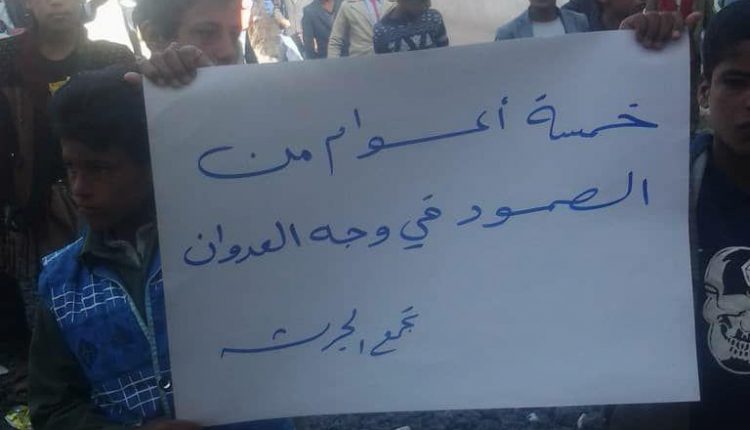 خمسة أعوام من
الصمود في وجه العدوان
تجمع الجرشه